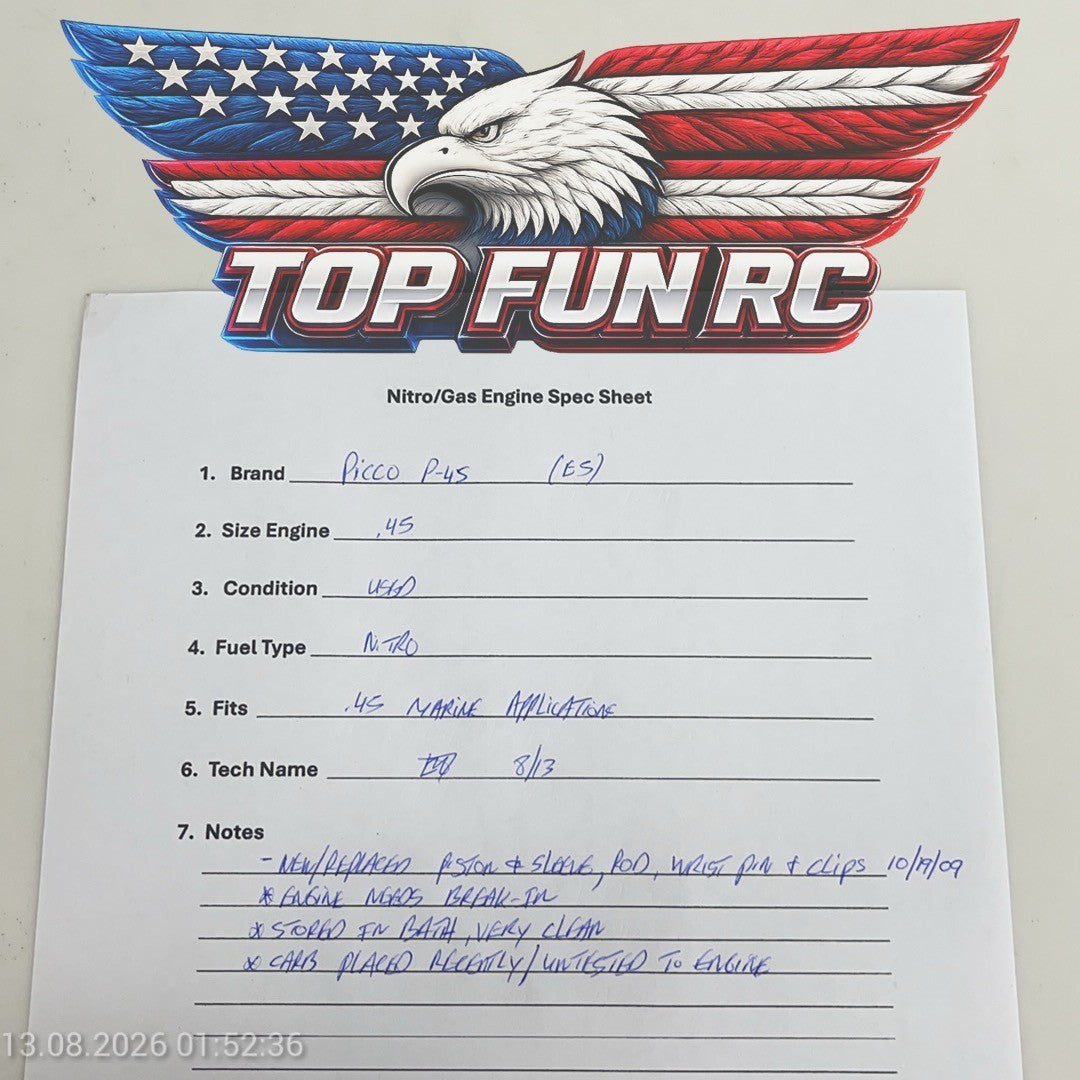 TOP FUN RC
Nitro/Gas Engine Spec Sheet
1. Brand PICCO P-45 (ES)
2. Size Engine .45
3. Condition USED
4. Fuel Type NITRO
5. Fits .45 MARINE APPLICATIONS
6. Tech Name 8/13
7. Notes
- NEW/REPLACED PISTON & SLEEVE, ROD, WRIST PIN & CLIPS 10/19/09
* ENGINE NEEDS BREAK-IN
* STORED IN BATH, VERY CLEAN
* CARB PLACED RECENTLY/UNTESTED TO ENGINE
13.08.2026 01:52:36